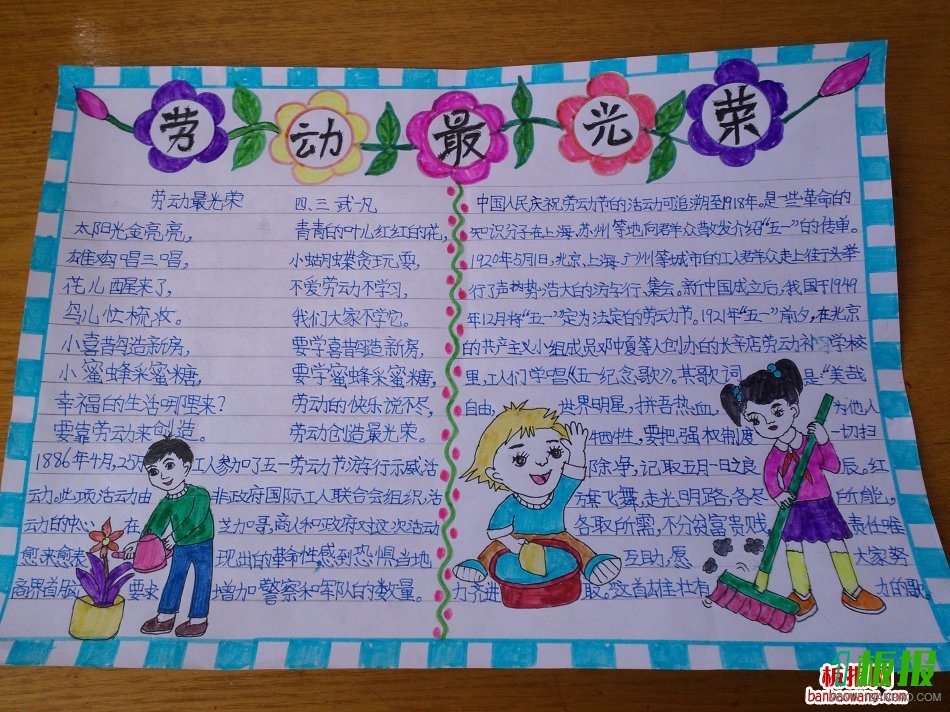 劳动最光荣
劳动最光荣
太阳光金亮亮,
雄鸡唱三唱,
花儿醒来了,
鸟儿忙梳妆。
小喜鹊造新房,
小蜜蜂采蜜糖,
幸福的生活哪里来?
要靠劳动来创造。
四、三 武凡
青青的叶儿红红的花,
小蝴蝶贪玩耍,
不爱劳动不学习,
我们大家不学它。
要学喜鹊造新房,
要学蜜蜂采蜜糖,
劳动的快乐说不尽,
劳动创造最光荣。
1886年4月,25万 工人参加了五一劳动节游行示威活
动。此项活动由 非政府国际工人联合会组织,活
动的中心 在 芝加哥,商人和政府对这次活动
愈来愈表 现出的革命性,感到恐惧,当地
商界首脑 要求 增加警察和军队的数量。
中国人民庆祝劳动节的活动可追溯至1918年。是一些革命的
知识分子在上海、苏州等地向群众散发介绍“五一”的传单。
1920年5月1日,北京、上海、广州等城市的工人群众走上街头举
行了声势浩大的游行、集会。新中国成立后,我国于1949
年12月将“五一”定为法定的劳动节。1921年“五一”前夕,在北京
的共产主义小组成员邓中夏等人创办的长辛店劳动补习学校
里,工人们学唱《五一纪念歌》。其歌词 是:“美哉
自由, 世界明星,拼吾热血, 为他人
牺牲,要把强权制度 一切扫
除净,记取五月一日之良 辰。红
旗飞舞,走光明路,各尽 所能,
各取所需,不分贫富贵贱 责任唯
互助,愿 大家努
力齐进 取。这首雄壮有 力的歌。
板报网
板报
banbaowang.com